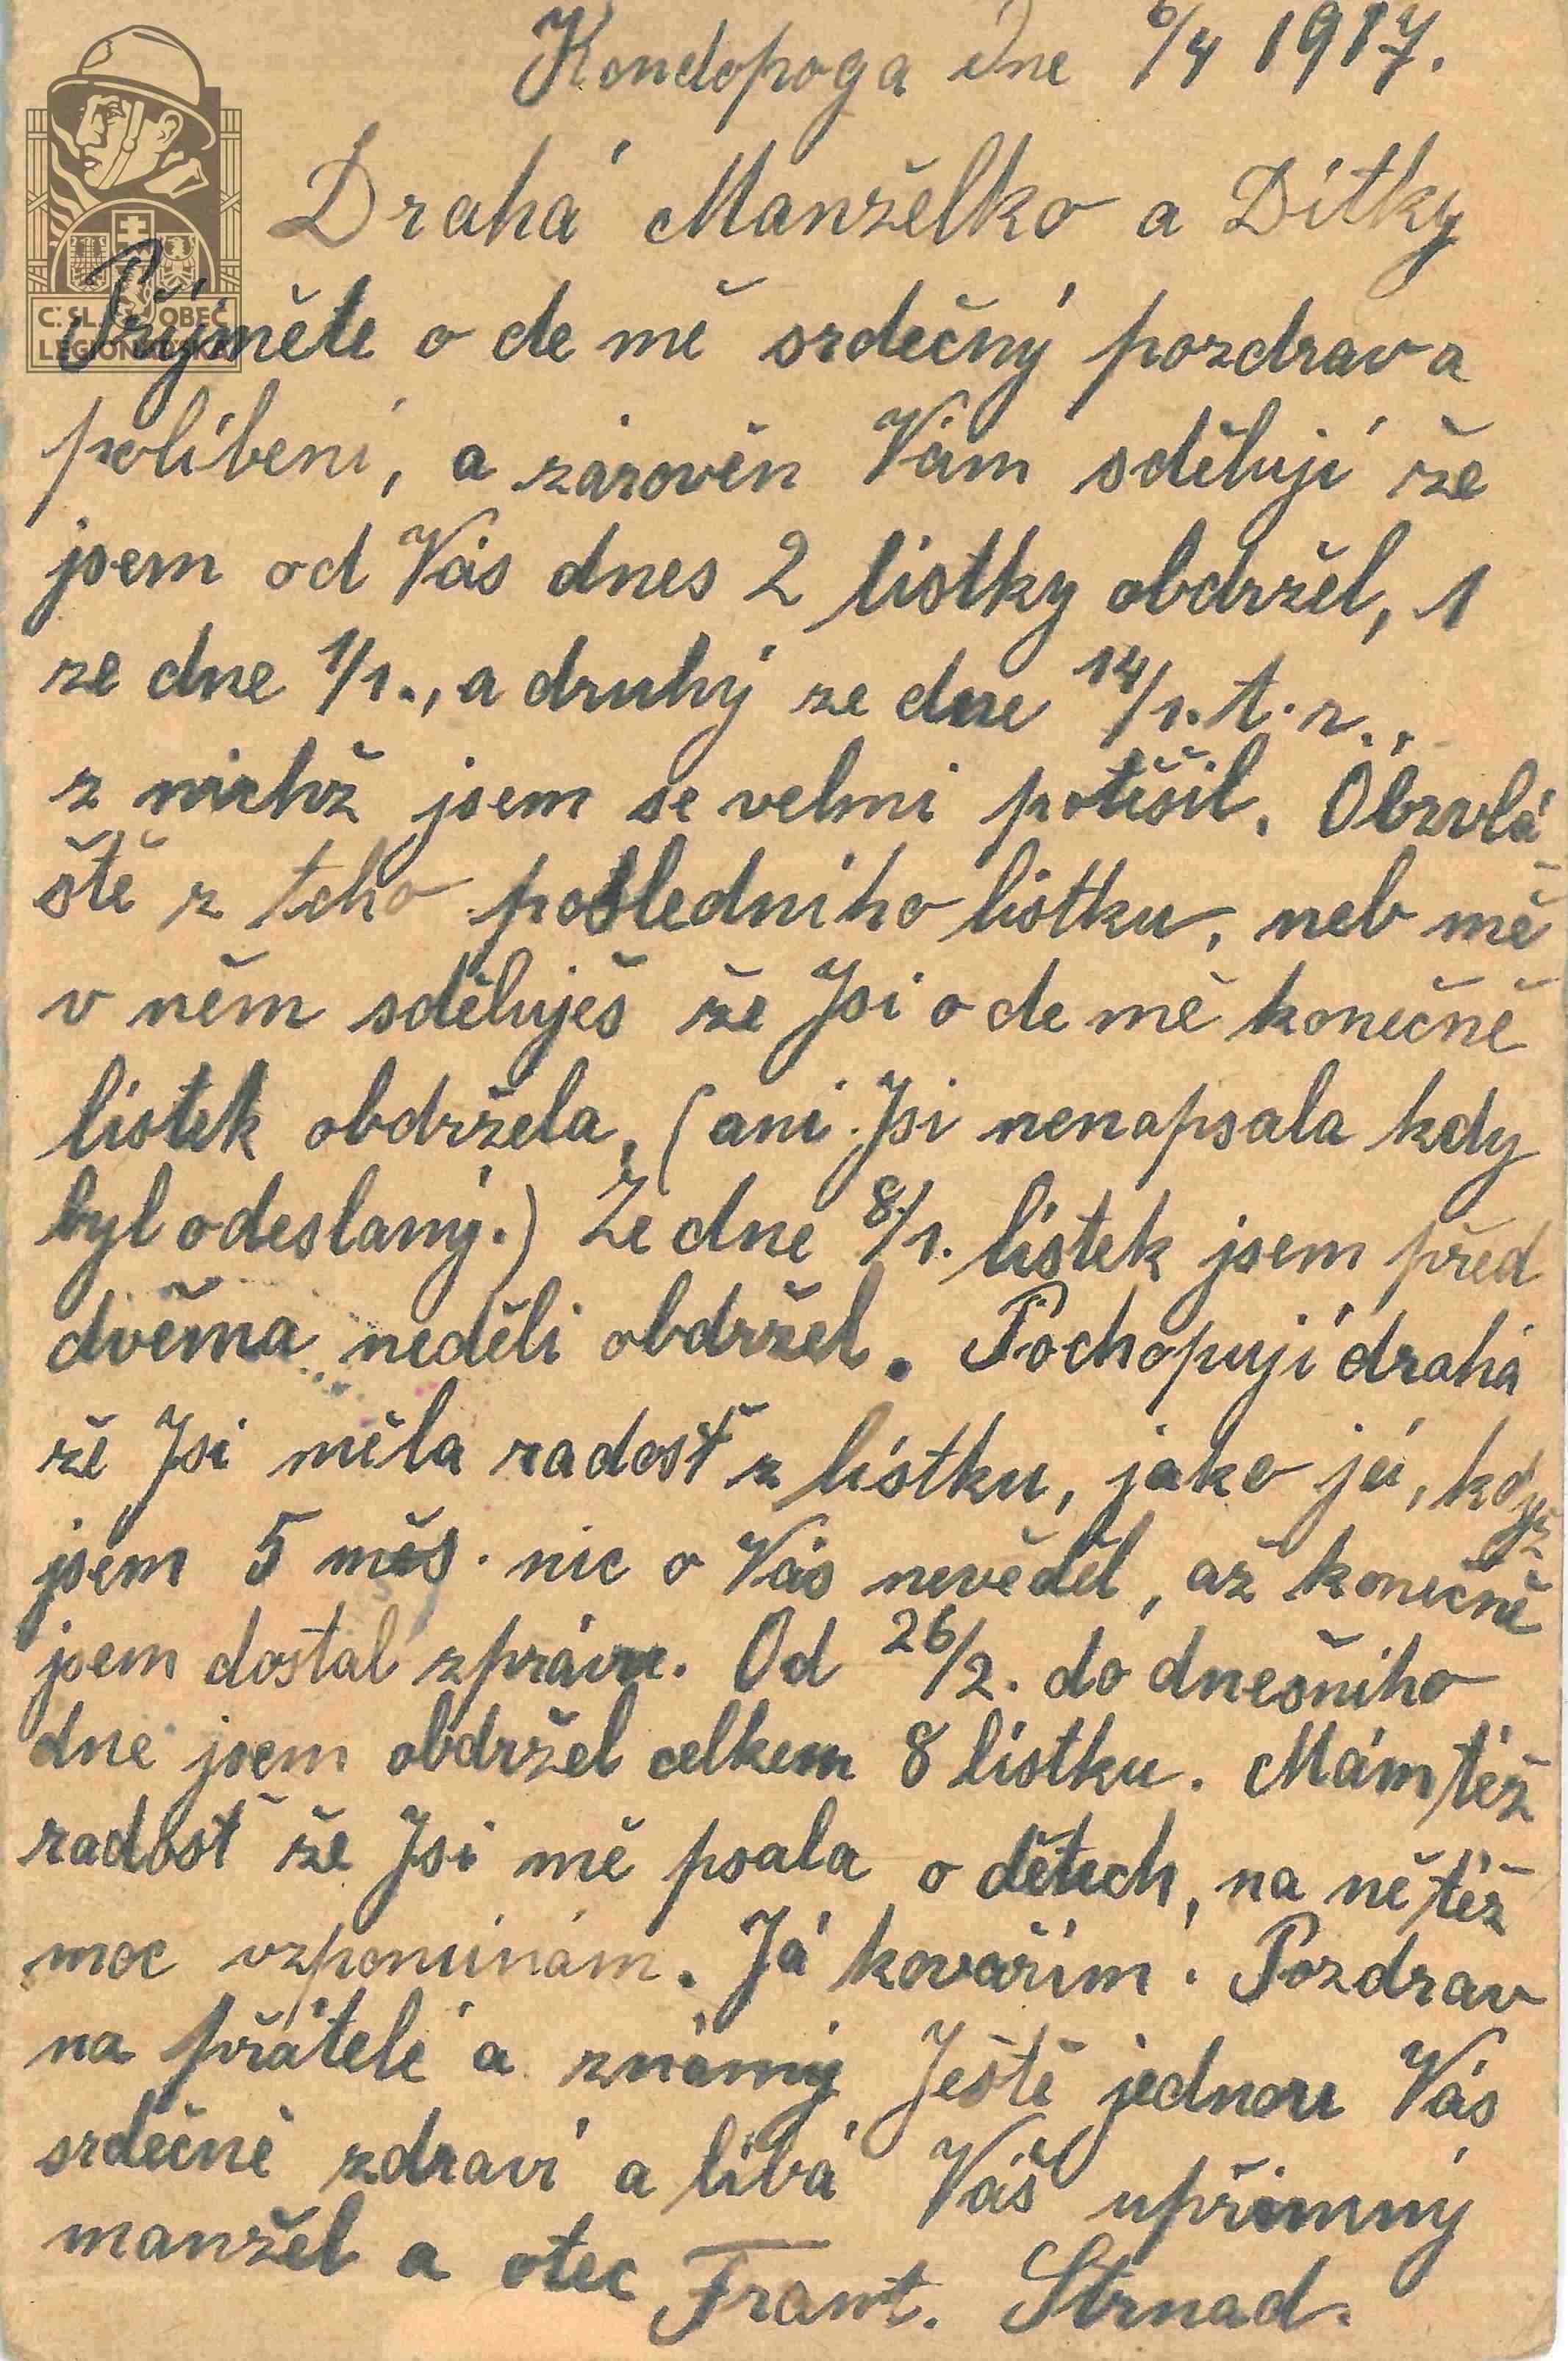 Kondopoga dne 6/4 1917.
Drahá Manželko a Dítky
Přijměte o de mě srdečný pozdrav a
políbení, a zároveň Vám sděluji že
jsem od Vás dnes 2 lístky obdržel, 1
ze dne 1/1., a druhý ze dne 14/1. t. r.,
z nichž jsem se velmi potěšil. Obzvlá
ště z toho posledního lístku, neb mě
v něm sděluješ že Jsi o de mě konečně
lístek obdržela, (ani Jsi nenapsala kdy
byl odeslaný.) Ze dne 8/1. lístek jsem před
dvěma neděli obdržel. Pochopuji drahá
že Jsi měla radosť z lístku, jako já, když
jsem 5 měs. nic o Vás nevěděl, až konečně
jsem dostal zprávu. Od 26/2. do dnešního
dne jsem obdržel celkem 8 lístku. Mám též
radosť že Jsi mě psala o dětech, na ně též
moc vzpomínám. Já kovařím. Pozdrav
na přátelé a známý. Ještě jednou Vás
srdečně zdraví a líbá Váš upřímný
manžel a otec Frant. Strnad.
Č. SL. OBEC
LEGIONÁŘSKÁ